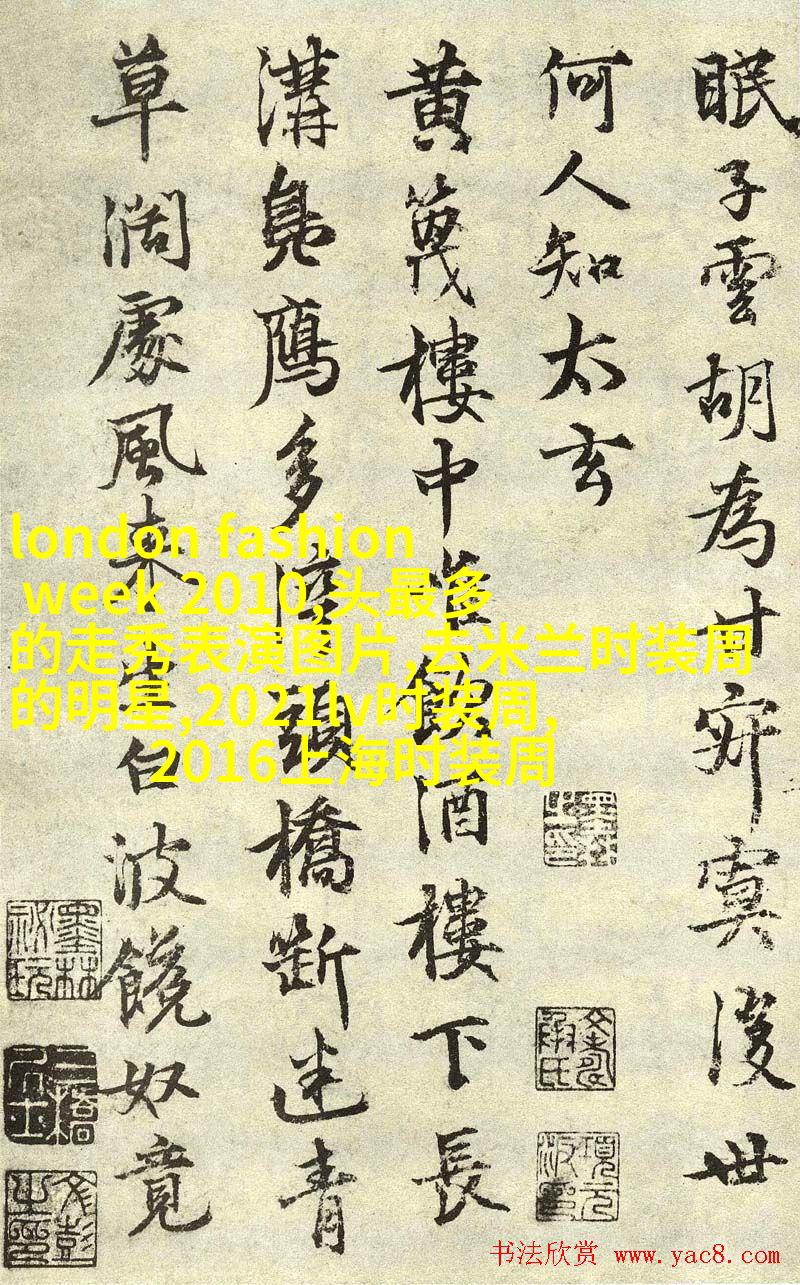 眠子雲胡為計寂寞後世
何人知太玄
黄篾樓中飲酒樓下長
溝鳧鴈多頭橋斷迷青
草闊處風来生白波饒奴竟
london fashion
week 2010,头最多
的走秀表演图片,去米兰时装周
的明星,2021lv时装周,
2016上海时装周
书法欣赏 www.yac8.com